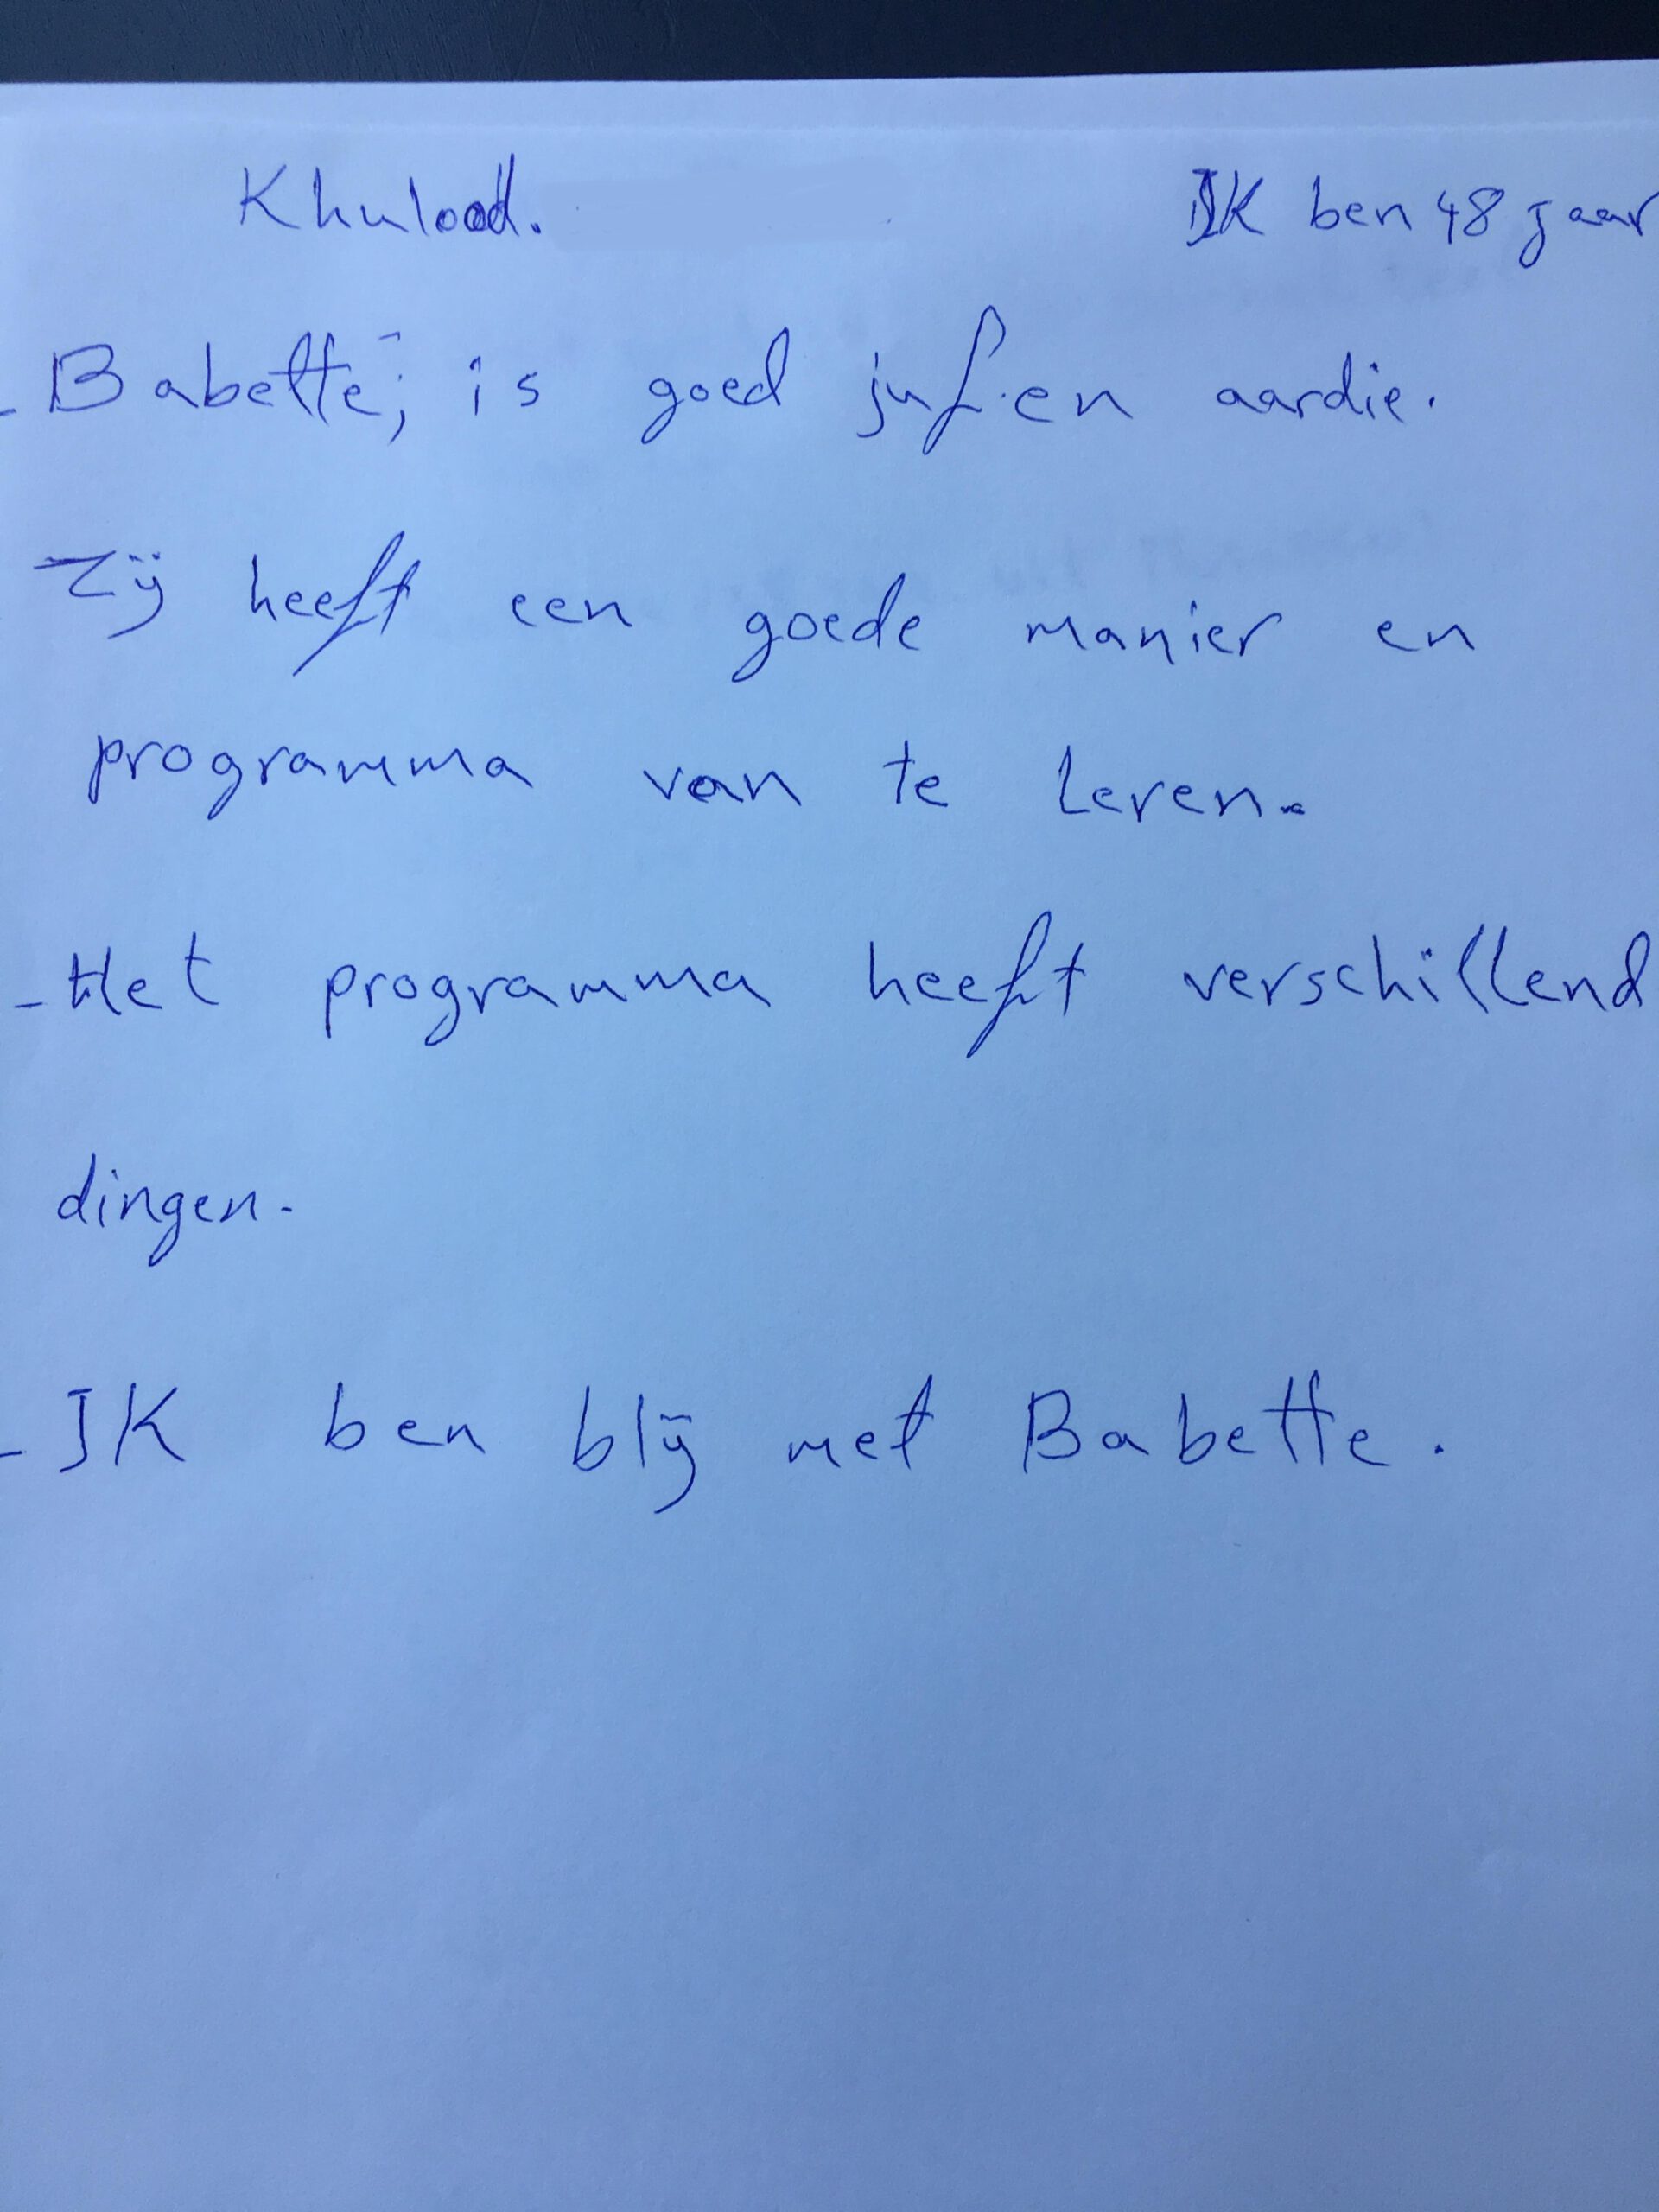 Khulood. IK ben 48 jaar
- Babette; is goed juf. en aardie.
Zij heeft een goede manier en
programma van te Leren.
- Het programma heeft verschillend
dingen.
- IK ben blij met Babette.